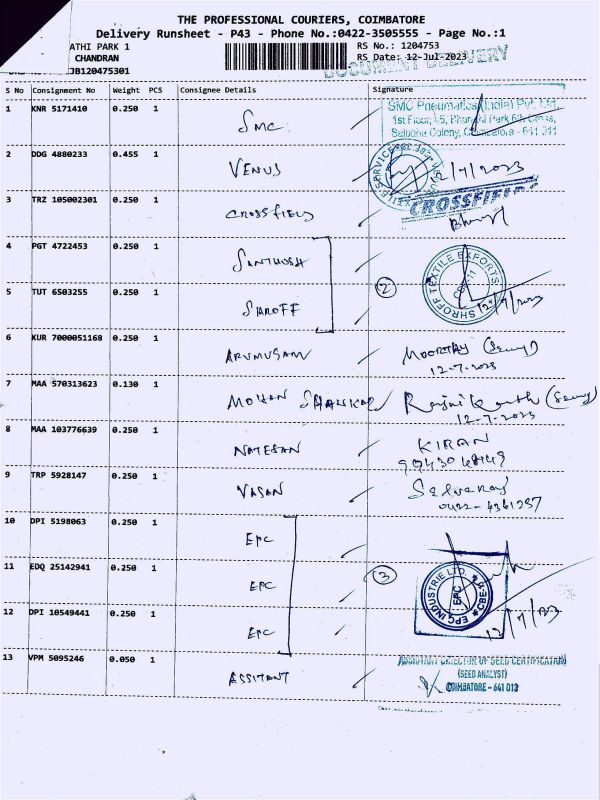 THE PROFESSIONAL COURIERS, COIMBATORE
Delivery Runsheet - P43 - Phone No.:0422-3505555 - Page No.:1
ATHI PARK 1
RS No.: 1204753
CHANDRAN
RS Date: 12-Jul-2023
JB120475301
DOCUMENT DELIVERY
S No Consignment No Weight PCS Consignee Details Signature
1 KNR 5171410 0.250 1 SMC
SMC Pneumatics (India) Pvt. Ltd.
1st Floor, Park
Colony, Coimbatore - 641 011
2 DDG 4880233 0.455 1 VENUS 12/7/2023
3 TRZ 105002301 0.250 1 CROSSFIELD CROSSFIELD
4 PGT 4722453 0.250 1 SANTHOSH
5 TUT 6503255 0.250 1 SHROFF
2 SHROFF TEXTILE EXPORTS CBE-11 12/7/2023
6 KUR 7000051168 0.250 1 ARUMUGAM MOORTHY
12-7-2023
7 MAA 570313623 0.130 1 MOHAN SHANKAR Rajnikanth
12-7-2023
8 MAA 103776639 0.250 1 NATESAN KIRAN
9 TRP 5928147 0.250 1 VASAN Selvaraj
0422-4361257
10 DPI 5198063 0.250 1 EPC
11 EDQ 25142941 0.250 1 EPC
3 EPC INDUSTRIE LTD. EPC CBE
12 DPI 10549441 0.250 1 EPC 12/7/23
13 VPM 5095246 0.050 1 ASSITANT
ASSISTANT DIRECTOR OF SEED CERTIFICATION
(SEED ANALYST)
COIMBATORE - 641 013